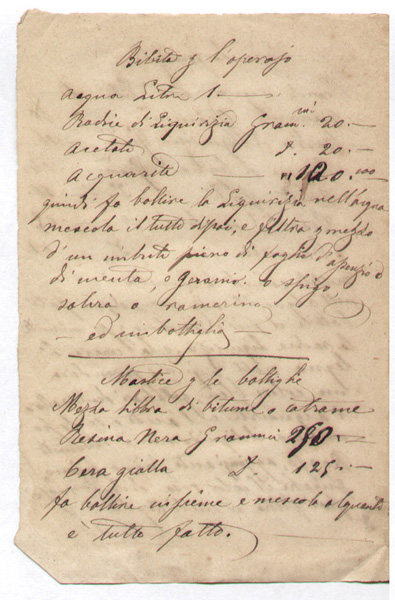 Bibita p l'operajo
Acqua Litri 1 —
Radice di Liquirizia Gram.mi 20.—
Aceto — D. 20.—
Acquavite — 120.
quindi fa bollire la Liquirizia nell'acqua
mescola il tutto dipoi, e filtra p mezzo
d'un imbuto pieno di foglie d'assenzio o
di menta, o geranio, o spigo,
salvia o ramerino
— ed imbottiglia —
Mastice p le bottiglie
Mezza libbra di bitume o catrame
Resina Nera Grammi 250.—
Cera gialla D. 125.—
fa bollire insieme e mescola
e tutto fatto.